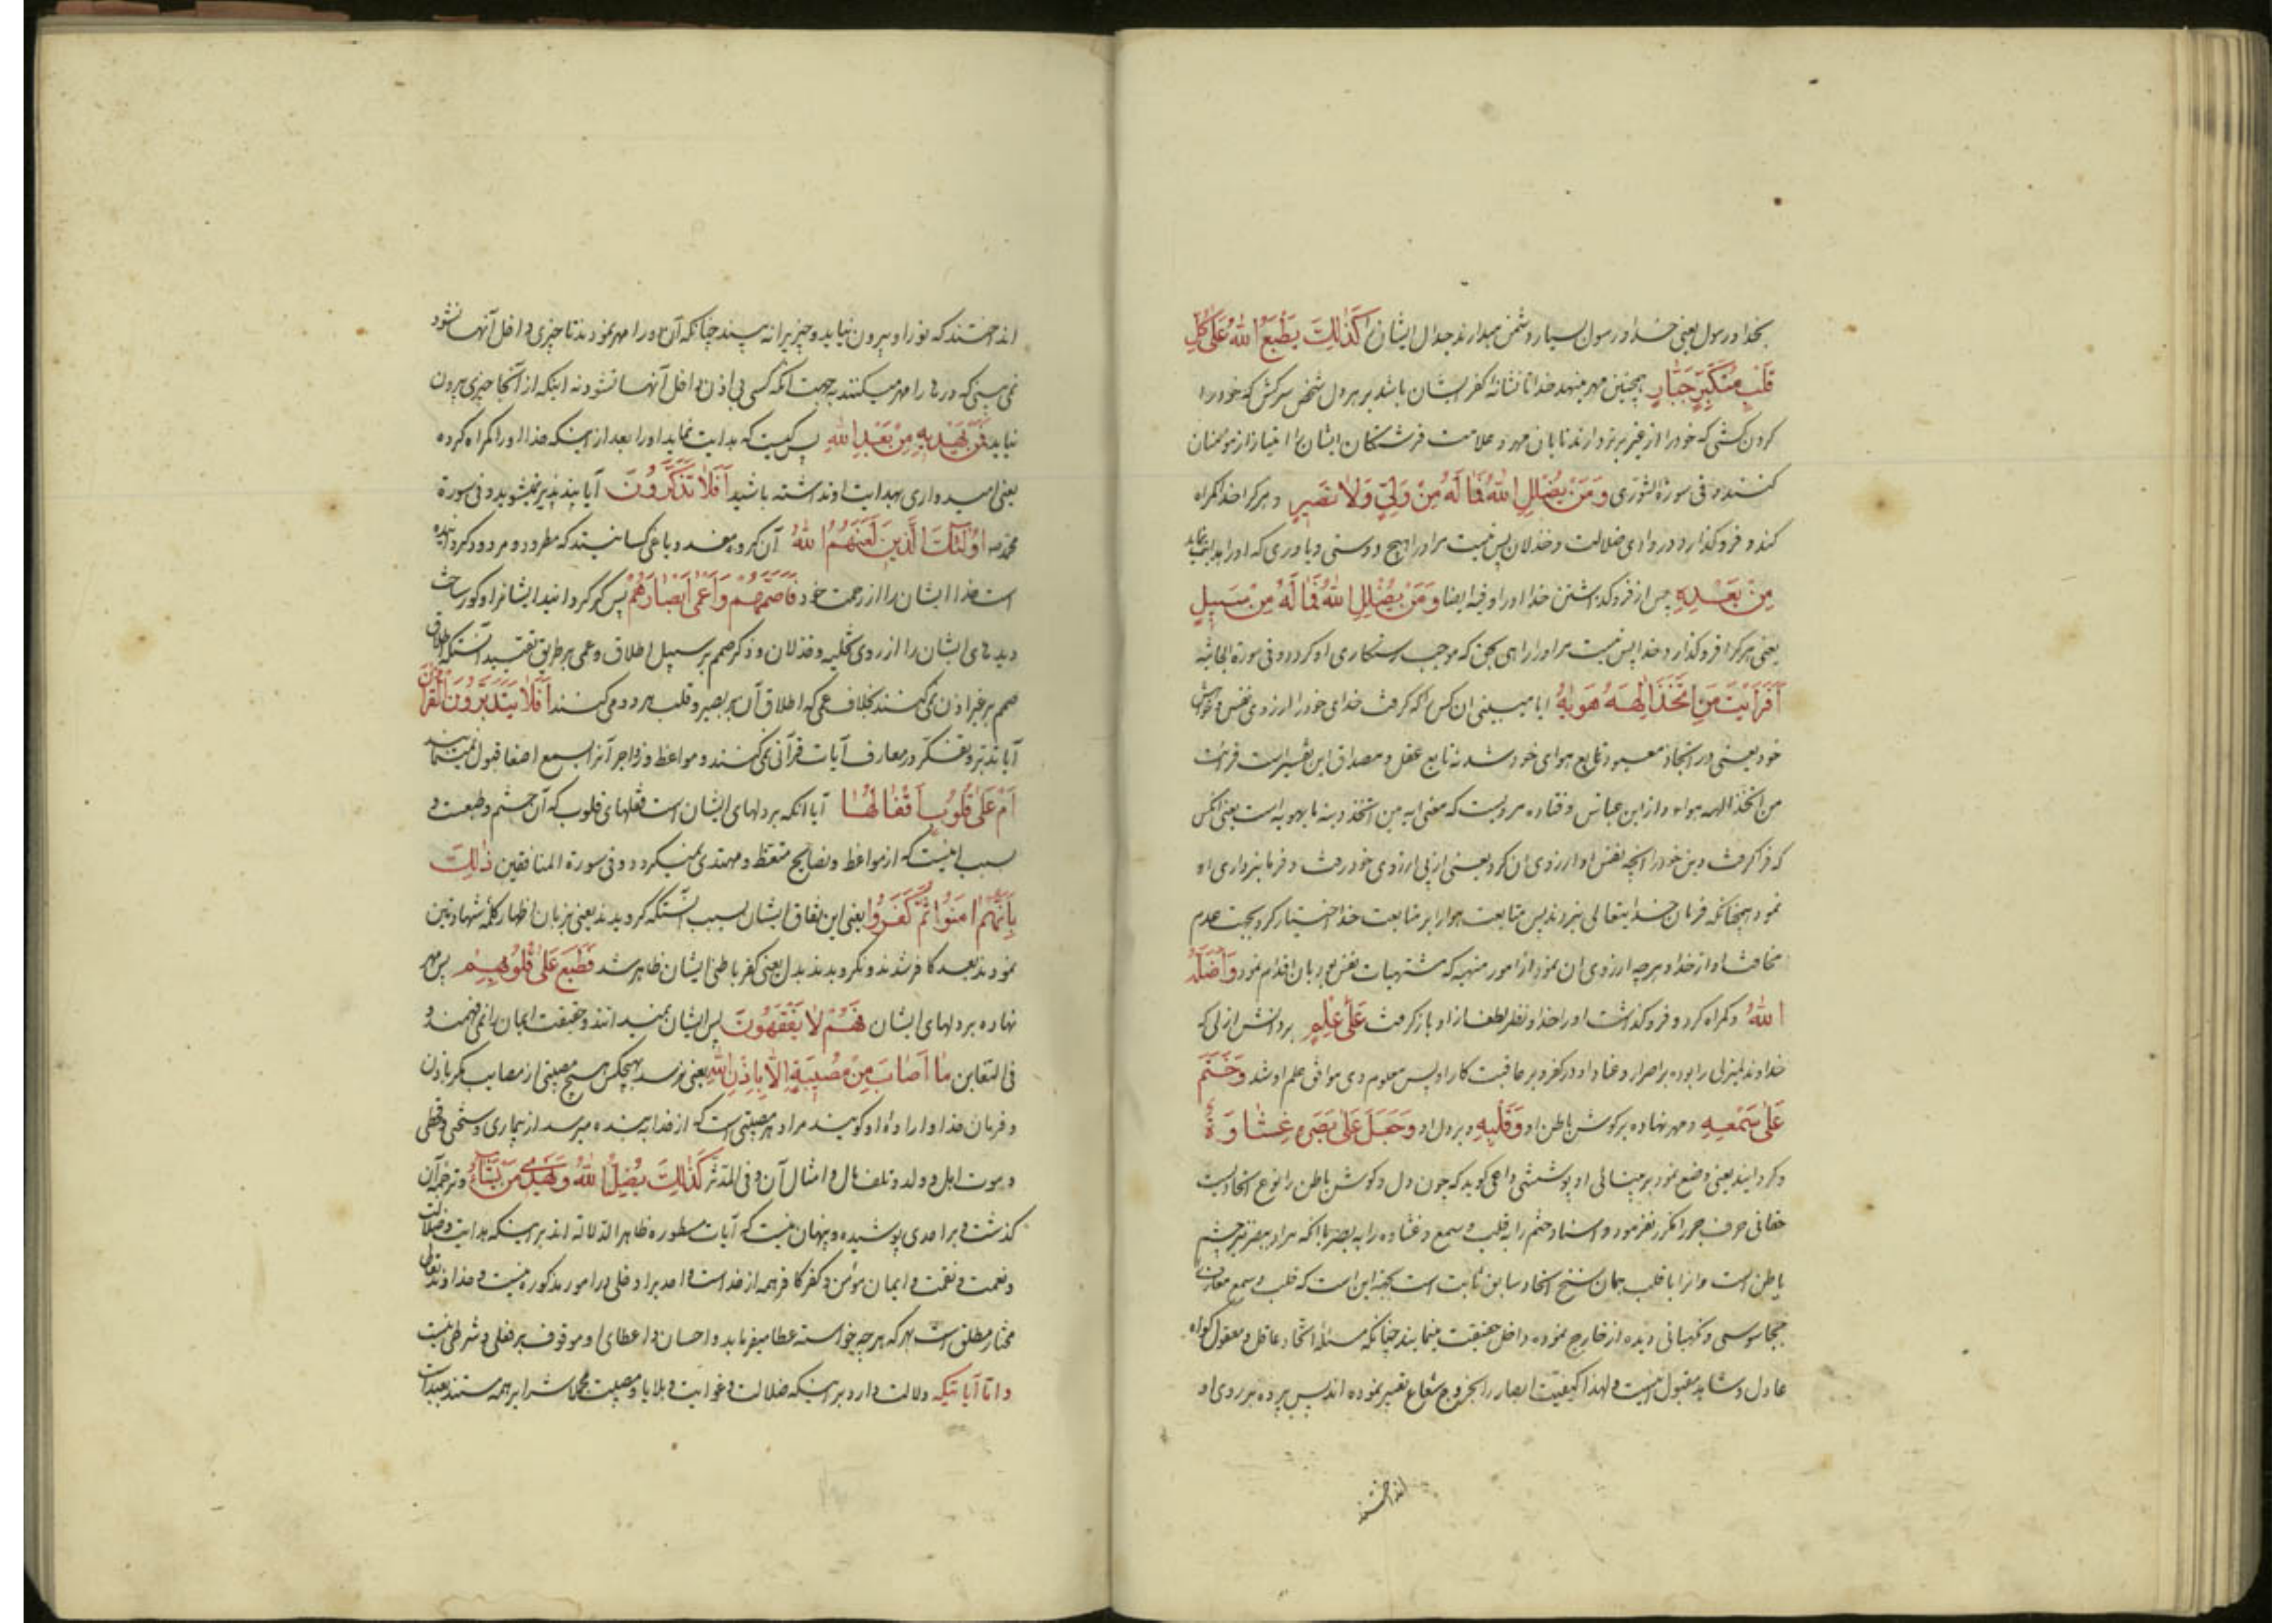 بخدا و رسول یعنی خدا و رسول بسیار دشمن میدارند جدال ایشان را كَذٰلِكَ يَطْبَعُ اللّٰهُ عَلىٰ كُلِّ
قَلْبِ مُتَكَبِّرٍ جَبّٰارٍ همچنین مهر مینهد خدا تا نشانه کفر ایشان باشد بر هر دل شخص سرکش که خود را
کردن کشی که خود را از غیر برتر دارند تا بان مهر و علامت فرشتکان ایشان را امتیاز از مومنان
کنند و فی سورة الشوری وَ مَنْ يُضْلِلِ اللّٰهُ فَمٰا لَهُ مِنْ وَلِيٍّ وَلاٰ نَصِيرٍ و هر کرا خدا کمراه
کند و فرو کذارد در وادی ضلالت و خذلان پس نیست مر او را هیچ دوستی و یاوری که او را هدایت نماید
مِنْ بَعْدِهِ پس از فرو کذاشتن خدا او را و فیه ایضا وَ مَنْ يُضْلِلِ اللّٰهُ فَمٰا لَهُ مِنْ سَبِيلٍ
یعنی هر کرا فرو کذارد خدا پس نیست مر او را راهی بحق که موجب رستکاری او کردد و فی سورة الجاثیه
أَفَرَأَيْتَ مَنِ اتَّخَذَ إِلٰهَهُ هَوٰيهُ ایا میبینی ان کس را که کرفت خدای خود را ارزوی نفس و خواهش
خود یعنی در اتخاذ معبود تابع هوای خود شد نه تابع عقل و مصداق این تفسیر است قرائت
من اتخذ الهه هواه و از ابن عباس و قتاده مرویست که معنی ایه من اتخذ دینه ما یهویه است یعنی انکس
که فرا کرفت دین خود را انچه نفس او ارزوی ان کرد یعنی از پی ارزوی خود رفت و فرمانبرداری او
نمود همچنانکه فرمان خدایتعالی نبردند پس متابعت هوا را بر متابعت خدا اختیار کرد بجهت عدم
مخافت او از خدا و هر چه ارزوی ان نمود از امور منهیه که مشتهیات نفس بود بان اقدام نمود وَ أَضَلَّهُ
اللّٰهُ و کمراه کرد و فرو کذاشت او را خدا و نظر لطف از او باز کرفت عَلىٰ عِلْمٍ بر دانش ازلی که
خداوند لم یزلی را بوده بر اصرار و عناد او در کفر و بر عاقبت کار او پس معلوم وی موافق علم او شد وَ خَتَمَ
عَلىٰ سَمْعِهِ و مهر نهاده بر کوش باطن او وَ قَلْبِهِ و بر دل او وَ جَعَلَ عَلىٰ بَصَرِهِ غِشٰاوَةً
و کردانید یعنی وضع نمود بر بینائی او پوششی داعی کوید که چون دل و کوش باطن را نوع اتحادیست
حقانی حرف جر را مکرر نفرمود و اسناد ختم را به قلب و سمع و غشاوه را به بصر با انکه مراد بصر نیز چشم
باطن است و انرا با قلب همان سنخ اتحاد سابق ثابت است بجهة این است که قلب و سمع معارف را
بجاسوسی و نکهبانی دیده از خارج نموده داخل حقیقت مینمایند چنانکه مسئله اتحاد عاقل و معقول کواه
عادل و شاهد مقبول اینست و لهذا کیفیت ابصار را بخروج شعاع تعبیر نموده اند پس پرده بر روی او
انداختند
انداختند که نور او بیرون نیاید و چیزیرا نه بیند چنانکه آن دو را مهر نمودند تا چیزی داخل آنها نشود
نمی بینی که درها را مهر میکنند به جهت انکه کسی بی اذن داخل آنها نشود نه اینکه از آنجا چیزی بیرون
نیاید فَمَنْ يَهْدِيهِ مِنْ بَعْدِ اللّٰهِ پس کیست که هدایت نماید او را بعد از اینکه خدا او را کمراه کرده
یعنی امیدواری بهدایت او نداشته باشید أَفَلاٰ تَذَكَّرُونَ آیا پند پذیر نمیشوید و فی سورة
محمد ص أُولٰئِكَ الَّذِينَ لَعَنَهُمُ اللّٰهُ آن کروه مفسد و باغی کسانیند که مطرود و مردود کردانیده
است خدا ایشان را از رحمت خود فَأَصَمَّهُمْ وَ أَعْمىٰ أَبْصٰارَهُمْ پس کر کردانید ایشانرا و کور ساخت
دیده های ایشان را از روی تخلیه و خذلان و ذکر صمم بر سبیل اطلاق و عمی بر طریق تقیید آنستکه اطلاق
صمم بر غیر اذن نمی کنند بخلاف عمی که اطلاق آن بر بصر و قلب هر دو می کنند أَفَلاٰ يَتَدَبَّرُونَ الْقُرْآنَ
آیا تدبر و تفکر در معارف آیات قرآنی نمی کنند و مواعظ و زواجر آنرا بسمع اصغا قبول نمینمایند
أَمْ عَلىٰ قُلُوبٍ أَقْفٰالُهٰا آیا انکه بر دلهای ایشان است قفلهای قلوب که آن ختم و طبعست و
سبب اینست که از مواعظ و نصایح متعظ و مهتدی نمیکردد و فی سورة المنافقین ذٰلِكَ
بِأَنَّهُمْ آمَنُوا ثُمَّ كَفَرُوا یعنی این نفاق ایشان بسبب آنستکه کرویدند یعنی بزبان اظهار کلمه شهادتین
نمودند بعد کافر شدند و نکرویدند بدل یعنی کفر باطنی ایشان ظاهر شد فَطُبِعَ عَلىٰ قُلُوبِهِمْ پس مهر
نهاده بر دلهای ایشان فَهُمْ لاٰ يَفْقَهُونَ پس ایشان نمیدانند و حقیقت ایمان را نمی فهمند و
فی التغابن مٰا أَصٰابَ مِنْ مُصِيبَةٍ إِلاّٰ بِإِذْنِ اللّٰهِ یعنی نرسد بهیچکس هیچ مصیبتی از مصایب مکر باذن
و فرمان خدا و اراده او کویند مراد هر مصیبتی است که از خدا به بنده میرسد از بیماری و سختی و قحطی
و موت اهل و ولد و تلف مال و امثال آن و فی المدثر كَذٰلِكَ يُضِلُّ اللّٰهُ وَ يَهْدِي مَنْ يَشٰاءُ و ترجمه آن
کذشت و بر احدی پوشیده و پنهان نیست که آیات مسطوره ظاهر الدلاله اند بر اینکه هدایت و ضلالت
و نعمت و نقمت و ایمان مؤمن و کفر کافر همه از خداست و احدیرا دخلی در امور مذکوره نیست و خداوند تعالی
مختار مطلق است بهر که هر چه خواسته عطا میفرماید و احسان و اعطای او موقوف بر فعلی و شرطی نیست
و اما آیاتیکه دلالت دارد بر اینکه ضلالت و غوایت و بلایا و مصیبت مجملا شرا بر همه مستند بعبد است